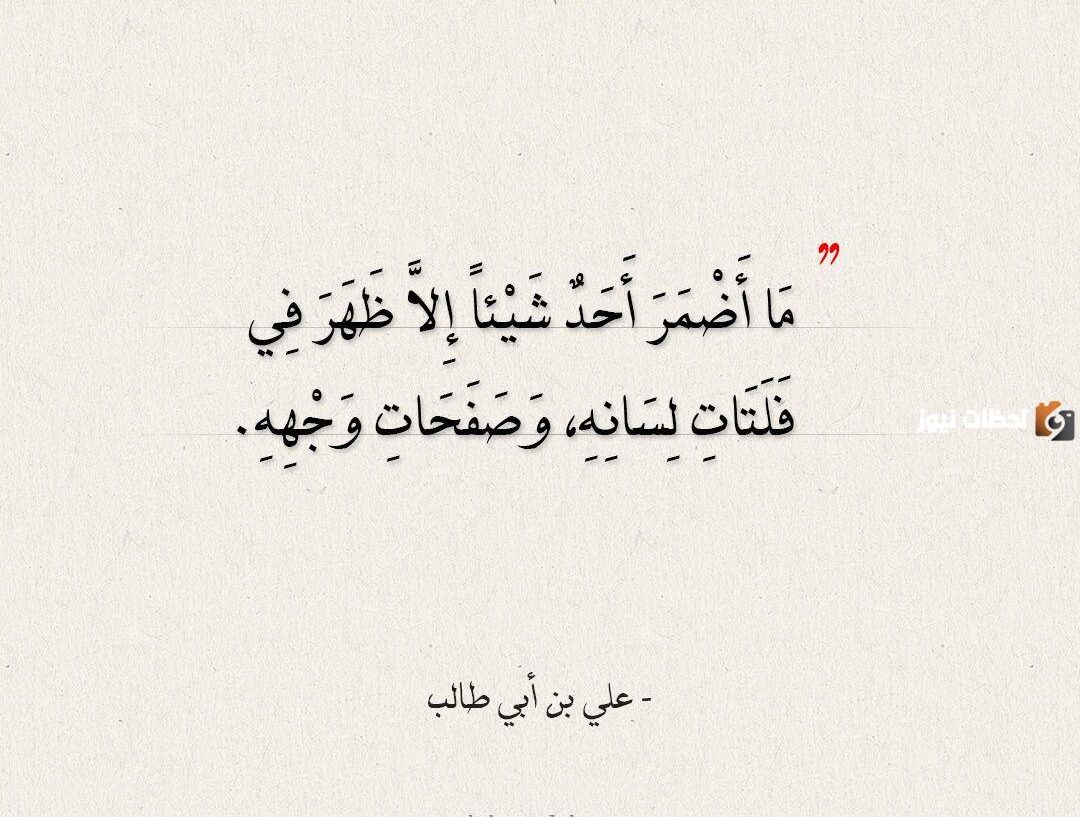 ”
مَا أَضْمَرَ أَحَدٌ شَيْئاً إِلاَّ ظَهَرَ فِي
فَلَتَاتِ لِسَانِهِ، وَصَفَحَاتِ وَجْهِهِ.
لحظات نيوز
- علي بن أبي طالب